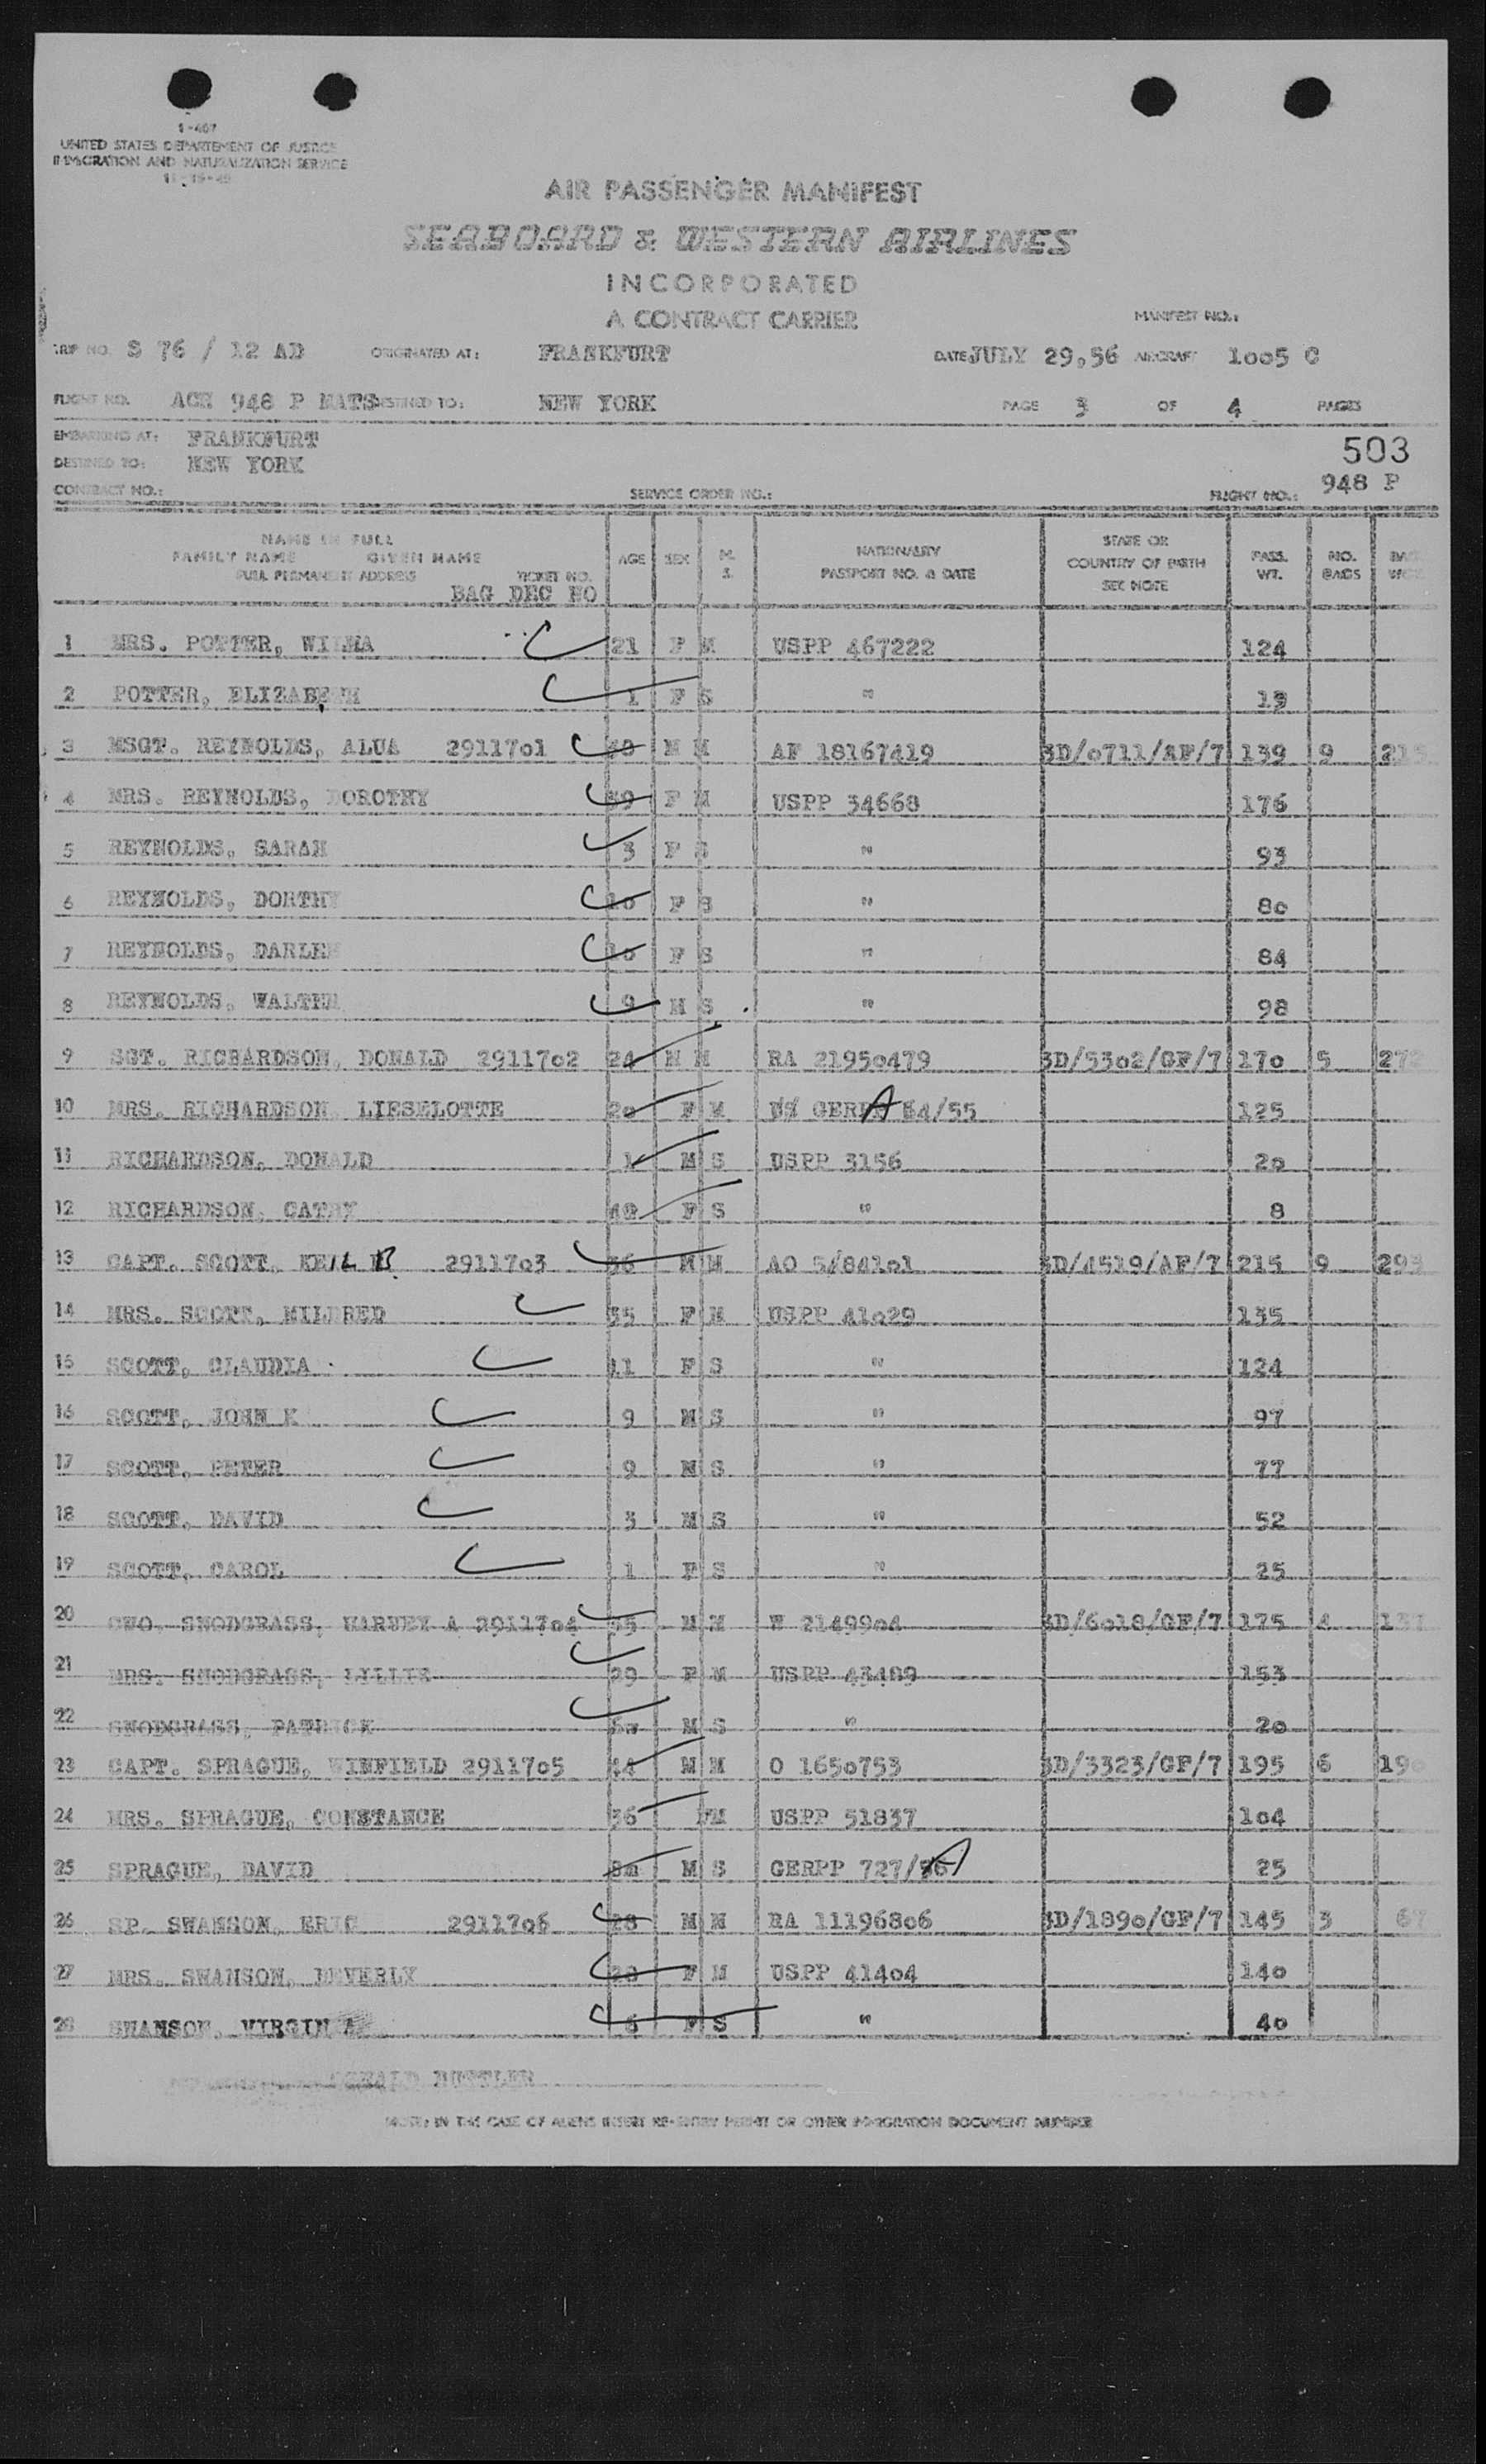 I-467
UNITED STATES DEPARTEMENT OF JUSTICE
IMMIGRATION AND NATURALIZATION SERVICE
AIR PASSENGER MANIFEST
SEABOARD & WESTERN AIRLINES
INCORPORATED
A CONTRACT CARRIER
MANIFEST NO.:
TRIP NO. S 76 / 12 AD ORIGINATED AT: FRANKFURT DATE JULY 29,56 AIRCRAFT 1005 C
FLIGHT NO. ACE 948 P MATS DESTINED TO: NEW YORK PAGE 3 OF 4 PAGES
EMBARKING AT: FRANKFURT
503
DESTINED TO: NEW YORK
CONTRACT NO.: SERVICE ORDER NO.: FLIGHT NO.: 948 P
NAME IN FULL
FAMILY NAME GIVEN NAME AGE SEX M. S. NATIONALITY PASSPORT NO. & DATE STATE OR COUNTRY OF BIRTH SEE NOTE PASS. WT. NO. BAGS
FULL PERMANENT ADDRESS TICKET NO.
BAG DEC NO
1 MRS. POTTER, WILMA 21 F M USPP 467222 124
2 POTTER, ELIZABETH 1 F S " 13
3 MSGT. REYNOLDS, ALUA 2911701 M M AF 18167419 3D/0711/AF/7 139 9 215
4 MRS. REYNOLDS, DOROTHY 39 F M USPP 34668 176
5 REYNOLDS, SARAH 3 F S " 93
6 REYNOLDS, DORTHY 10 F S " 80
7 REYNOLDS, DARLEN 10 F S " 84
8 REYNOLDS, WALTER 9 M S " 98
9 SGT. RICHARDSON, DONALD 2911702 24 M M RA 21950479 3D/5302/GF/7 170 5 272
10 MRS. RICHARDSON, LIESELOTTE 20 F M GERPP A 84/55 125
11 RICHARDSON, DONALD 1 M S USPP 3156 20
12 RICHARDSON, CATHY F S " 8
13 CAPT. SCOTT, KEIL B 2911703 36 M M AO 5/84101 3D/4519/AF/7 215 9 293
14 MRS. SCOTT, MILDRED 35 F M USPP 41029 135
15 SCOTT, CLAUDIA 11 F S " 124
16 SCOTT, JOHN K 9 M S " 97
17 SCOTT, PETER 9 M S " 77
18 SCOTT, DAVID 3 M S " 52
19 SCOTT, CAROL 1 F S " 25
20 CWO. SNODGRASS, HARVEY A 2911704 35 M M W 2149904 3D/6018/GF/7 175 4 131
21 MRS. SNODGRASS, LILLIE 29 F M USPP 43489 153
22 SNODGRASS, PATRICK M S " 20
23 CAPT. SPRAGUE, WINFIELD 2911705 44 M M O 1650753 3D/3323/GF/7 195 6 190
24 MRS. SPRAGUE, CONSTANCE 36 F M USPP 51837 104
25 SPRAGUE, DAVID 8m M S GERPP 727/56 A 25
26 SP. SWANSON, ERIC 2911706 28 M M RA 11196806 3D/1890/GF/7 145 3 67
27 MRS. SWANSON, BEVERLY 28 F M USPP 41404 140
28 SWANSON, VIRGINIA F S " 40
NOTE: IN THE CASE OF ALIENS INSERT RE-ENTRY PERMIT OR OTHER IMMIGRATION DOCUMENT NUMBER